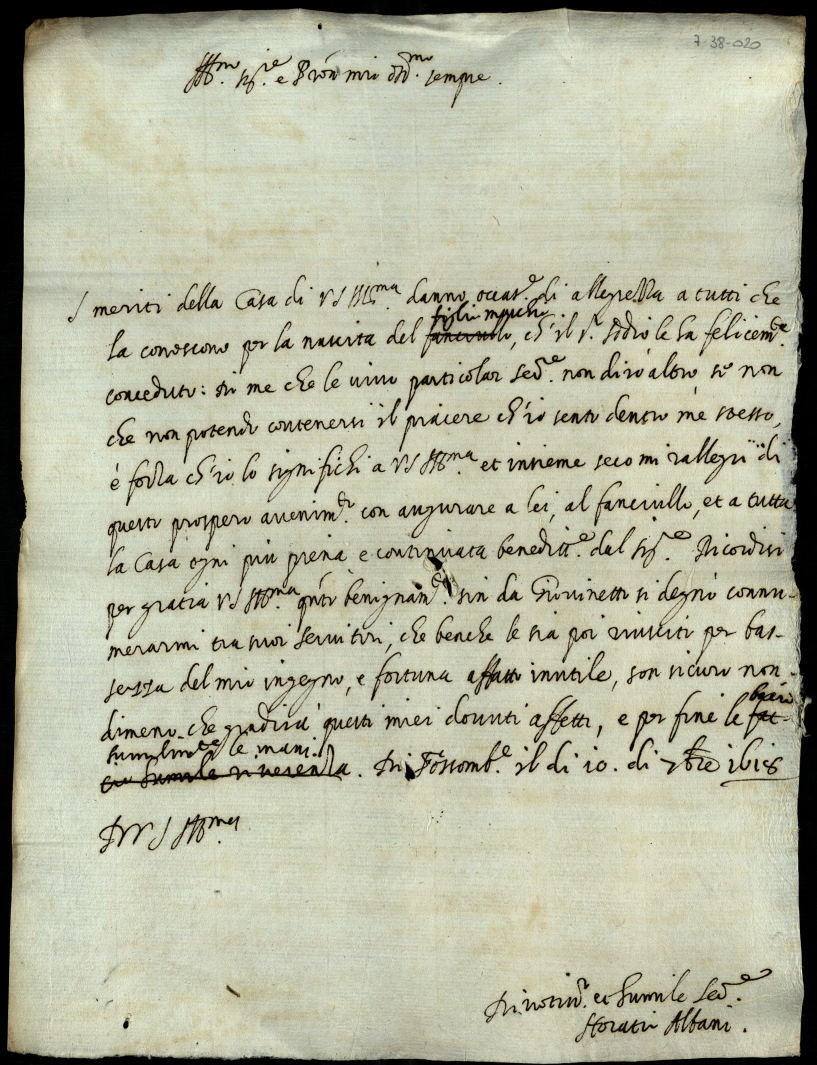 7-38-020
Ill.mo Sig.re e Pron mio oss.mo sempre.
I meriti della Casa di V S Ill.ma danno occas.e di allegrezza a tutti che
la conoscono per la nascita del fanciullo figlio maschio, ch'il s.r Iddio le ha felicem.te
conceduto: Di me che le vivo particolar ser.e non dirò altro se non
che non potendo contenersi il piacere ch'io sento dentro me stesso,
è forza ch'io lo significhi a V S Ill.ma et insieme seco mi rallegri di
questo prospero avenim.to con augurare a lei, al fanciullo, et a tutta
la Casa ogni più piena e continuata beneditt.e dal Sig.re Ricordisi
per gratia V S Ill.ma q̃nto benignam.te sin da Giovinetto si degnò connu-
merarmi tra suoi servitori, che benche le sia poi riuscito per bas-
sezza del mio ingegno, e fortuna affatto inutile, son sicuro non-
dimeno che gradirà questi miei dovuti affetti, e per fine le fac- bacio
cio humile riverenza humilm.te le mani. Di Fossomb.e il di 10. di 7bre 1618
D V S Ill.ma
Divotiss.o et humile Ser.e
Horatio Albani.